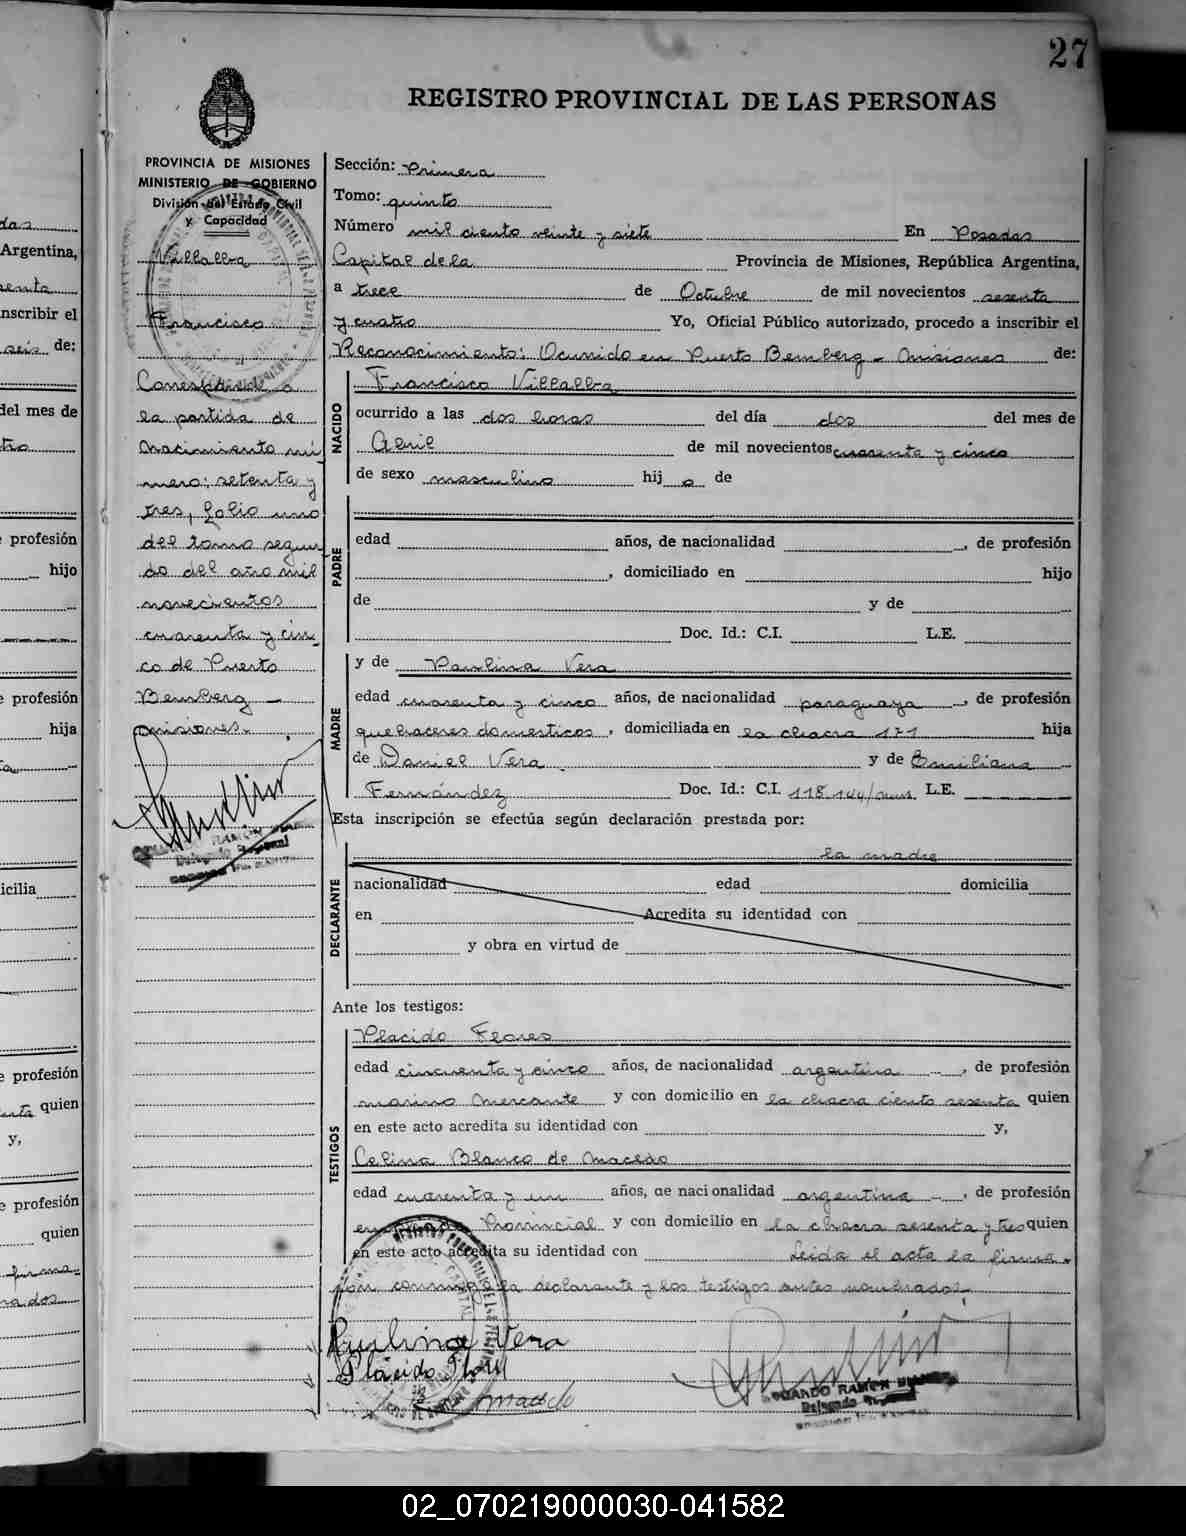 27
REGISTRO PROVINCIAL DE LAS PERSONAS
PROVINCIA DE MISIONES
MINISTERIO DE GOBIERNO
División del Estado Civil
y Capacidad
Villalba
Francisco
Corresponde a
la partida de
Nacimiento nú-
mero: setenta y
tres, folio uno
del tomo segun-
do del año mil
novecientos
cuarenta y cin-
co de Puerto
Bemberg -
Misiones.-
Delegado Regional
Sección: Primera
Tomo: quinto
Número mil ciento veinte y siete En Posadas
Capital de la Provincia de Misiones, República Argentina,
a trece de Octubre de mil novecientos sesenta
y cuatro Yo, Oficial Público autorizado, procedo a inscribir el
Reconocimiento: Ocurrido en Puerto Bemberg - Misiones de:
NACIDO
Francisco Villalba
ocurrido a las dos horas del día dos del mes de
Abril de mil novecientos cuarenta y cinco
de sexo masculino hij o de
PADRE
edad años, de nacionalidad , de profesión
, domiciliado en hijo
de y de
Doc. Id.: C.I. L.E.
MADRE
y de Paulina Vera
edad cuarenta y cinco años, de nacionalidad paraguaya , de profesión
quehaceres domesticos , domiciliada en la chacra 171 hija
de Daniel Vera y de Emiliana
Fernández Doc. Id.: C.I. 118.144/ L.E.
Esta inscripción se efectúa según declaración prestada por:
la madre
DECLARANTE
nacionalidad edad domicilia
en Acredita su identidad con
y obra en virtud de
Ante los testigos:
TESTIGOS
Placido Flores
edad cincuenta y cinco años, de nacionalidad argentina , de profesión
marino Mercante y con domicilio en la chacra ciento sesenta quien
en este acto acredita su identidad con y,
Celina Blanco de Macedo
edad cuarenta y un años, de nacionalidad argentina , de profesión
Provincial y con domicilio en la chacra sesenta y tres quien
en este acto acredita su identidad con Leida el acta la firma-
ron conmigo la declarante y los testigos antes nombrados.
Paulina Vera
Plácido Flores
Macedo
RAMÓN
Delegado Regional
das
Argentina,
nscribir el
seis de:
del mes de
e profesión
hijo
e profesión
hija
icilia
e profesión
quien
y,
e profesión
quien
firma-
rados
02_070219000030-041582